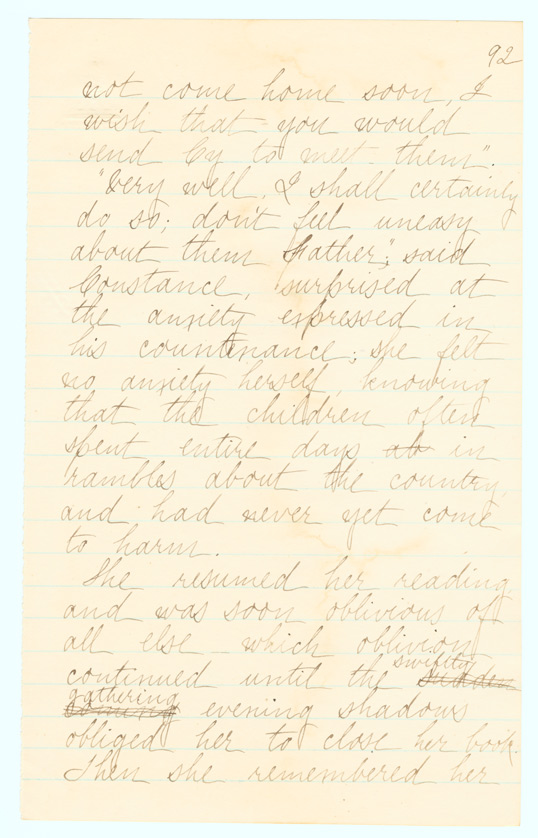 92
not come home soon, I
wish that you would
send Cy to meet them".
"Very well, I shall certainly
do so; don't feel uneasy
about them Father", said
Constance, surprised at
the anxiety expressed in
his countenance; she felt
no anxiety herself, knowing
that the children often
spent entire days ab in
rambles about the country,
and had never yet come
to harm.
She resumed her reading,
and was soon oblivious of
all else – which oblivion
swiftly
continued until the sudden
gathering
coming evening shadows
obliged her to close her book.
Then she remembered her